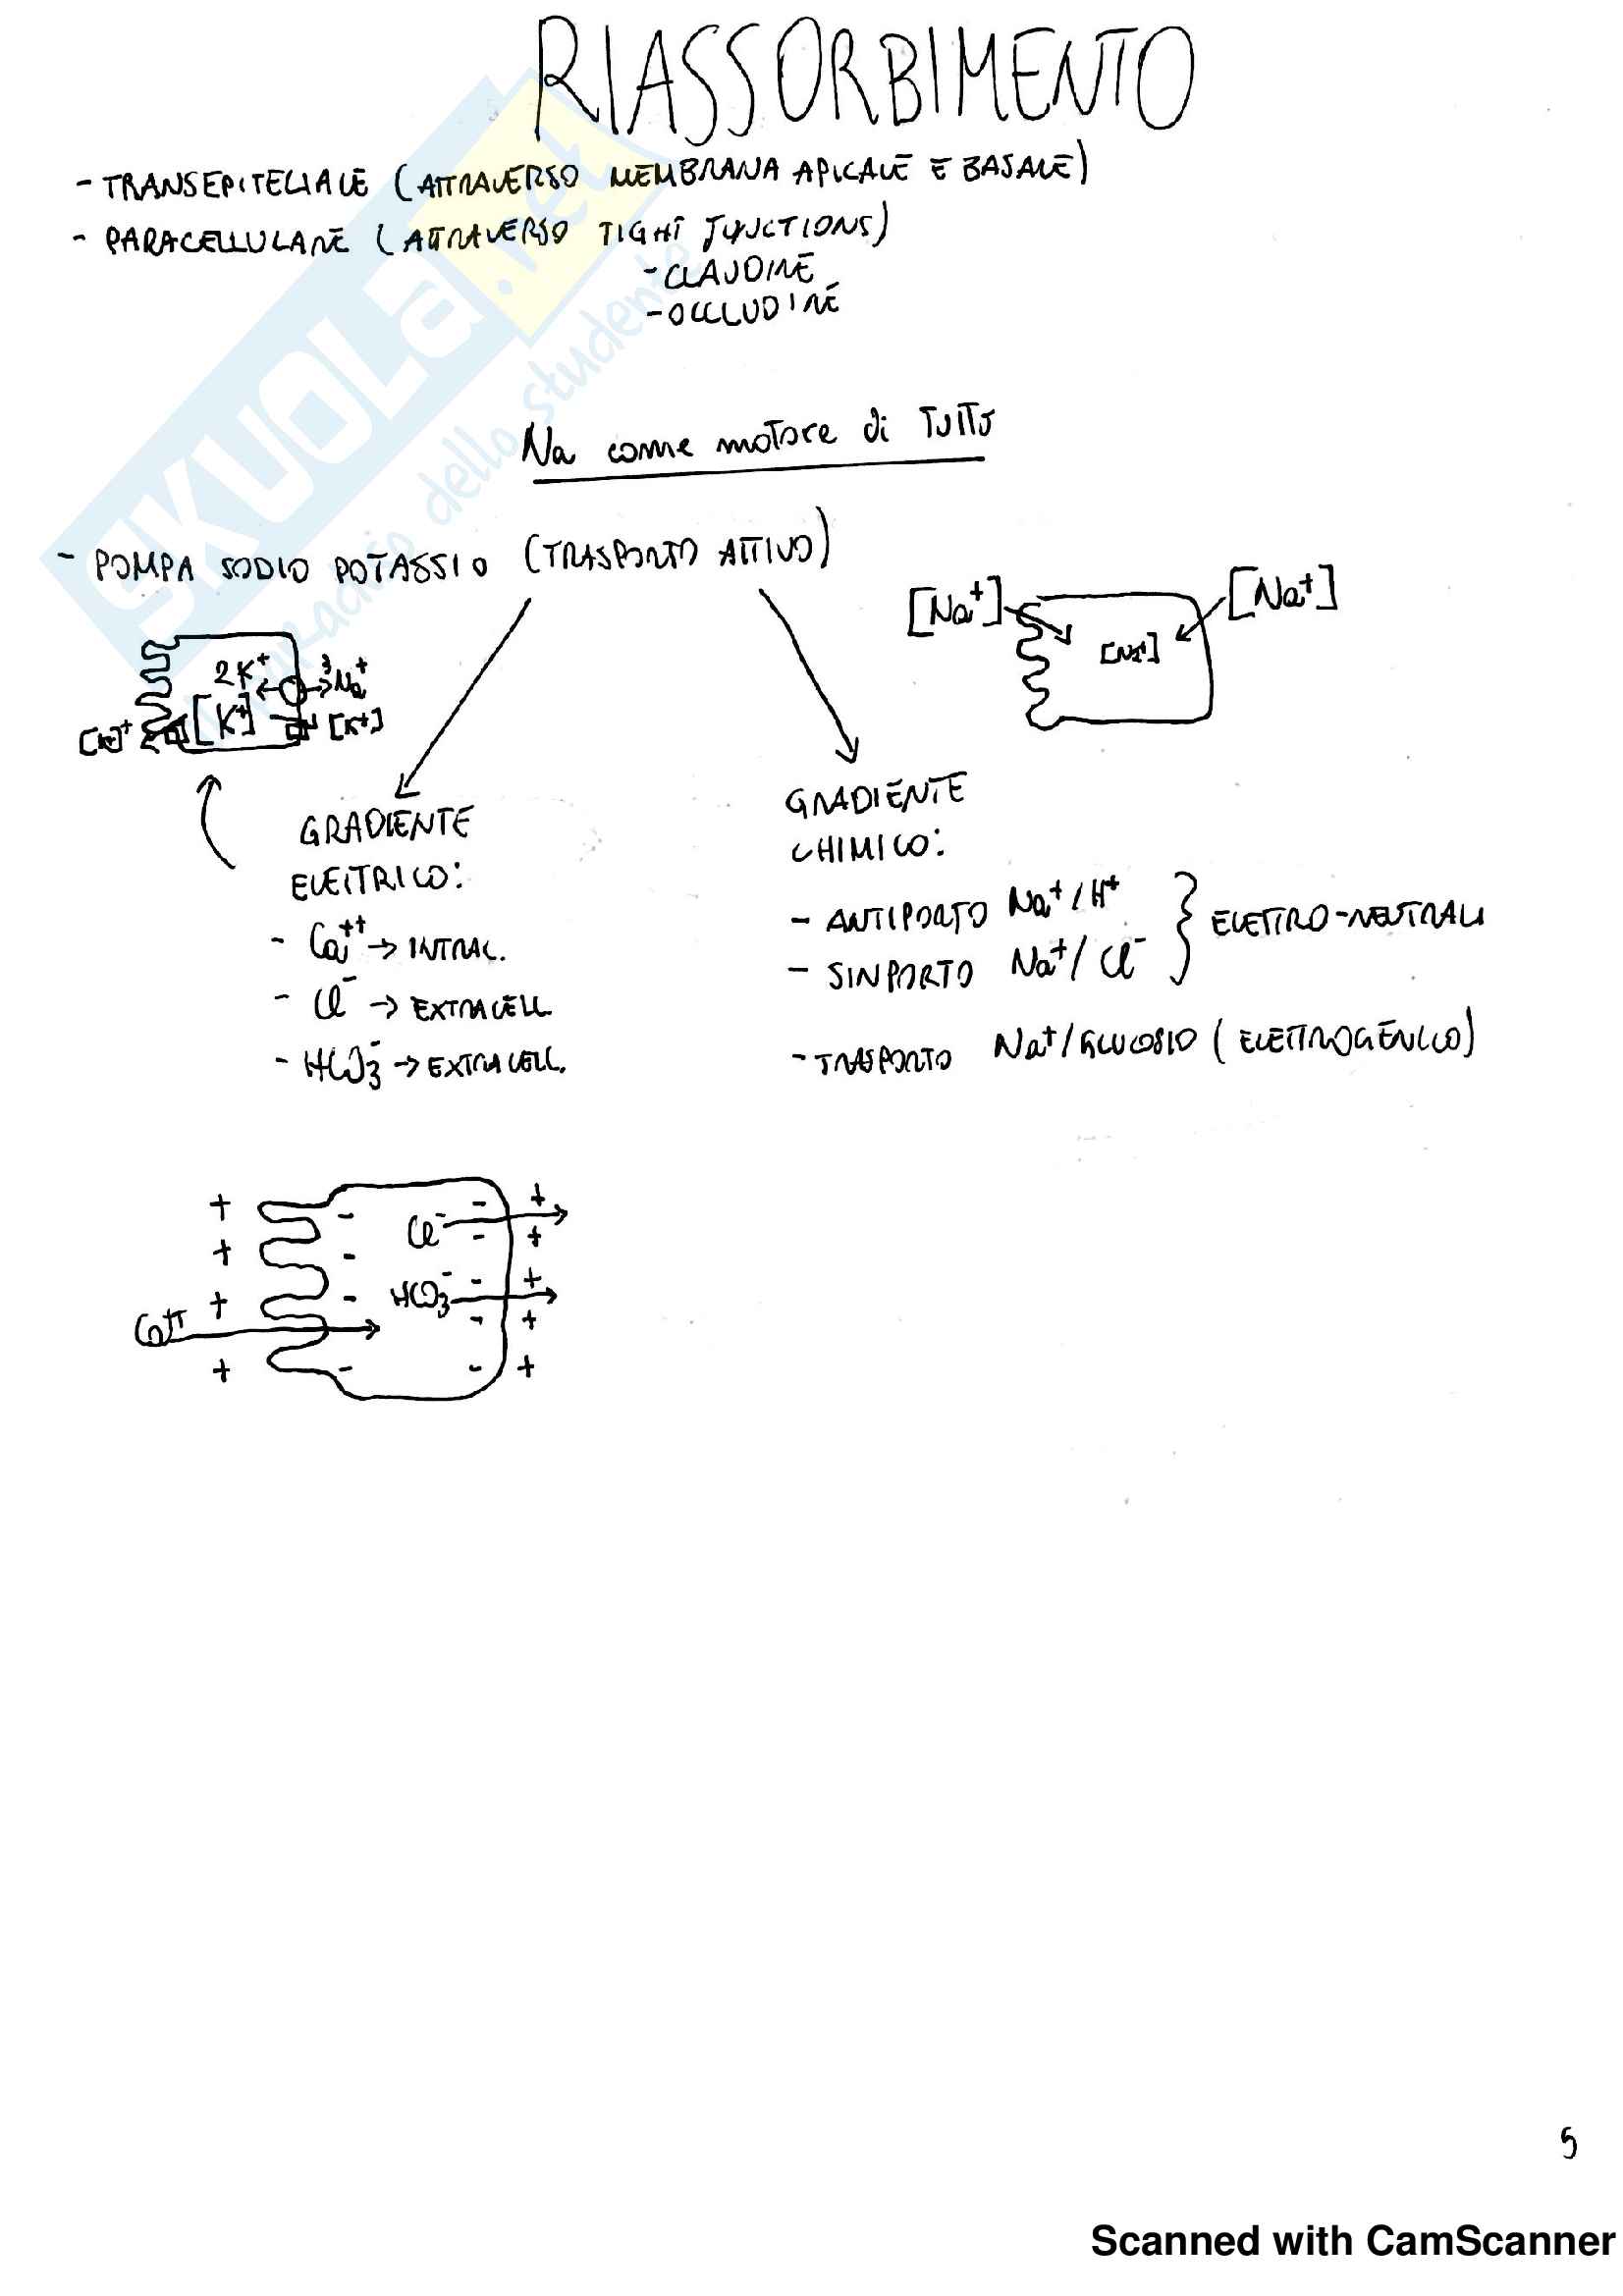 RIASSORBIMENTO
- TRANSEPITELIALE (ATTRAVERSO MEMBRANA APICALE E BASALE)
- PARACELLULARE (ATTRAVERSO TIGHT JUNCTIONS)
- CLAUDINE
- OCCLUDINE
Na come motore di TUTTO
- POMPA SODIO POTASSIO (TRASPORTO ATTIVO)
[Na+] [Na+] [Na+]
2K+ 3Na+
[K]+ [K+] [K+]
GRADIENTE ELETTRICO:
- Ca++ → INTRAC.
- Cl- → EXTRACELL.
- HCO3- → EXTRACELL.
GRADIENTE CHIMICO:
- ANTIPORTO Na+/H+
- SINPORTO Na+/Cl- } ELETTRO-NEUTRALI
- TRASPORTO Na+/GLUCOSIO (ELETTROGENICO)
+ - Cl- - +
+ - - +
+ - HCO3- - +
Ca++ - +
+ - - +
5
Scanned with CamScanner
SKUOLA.net
paradiso dello studente